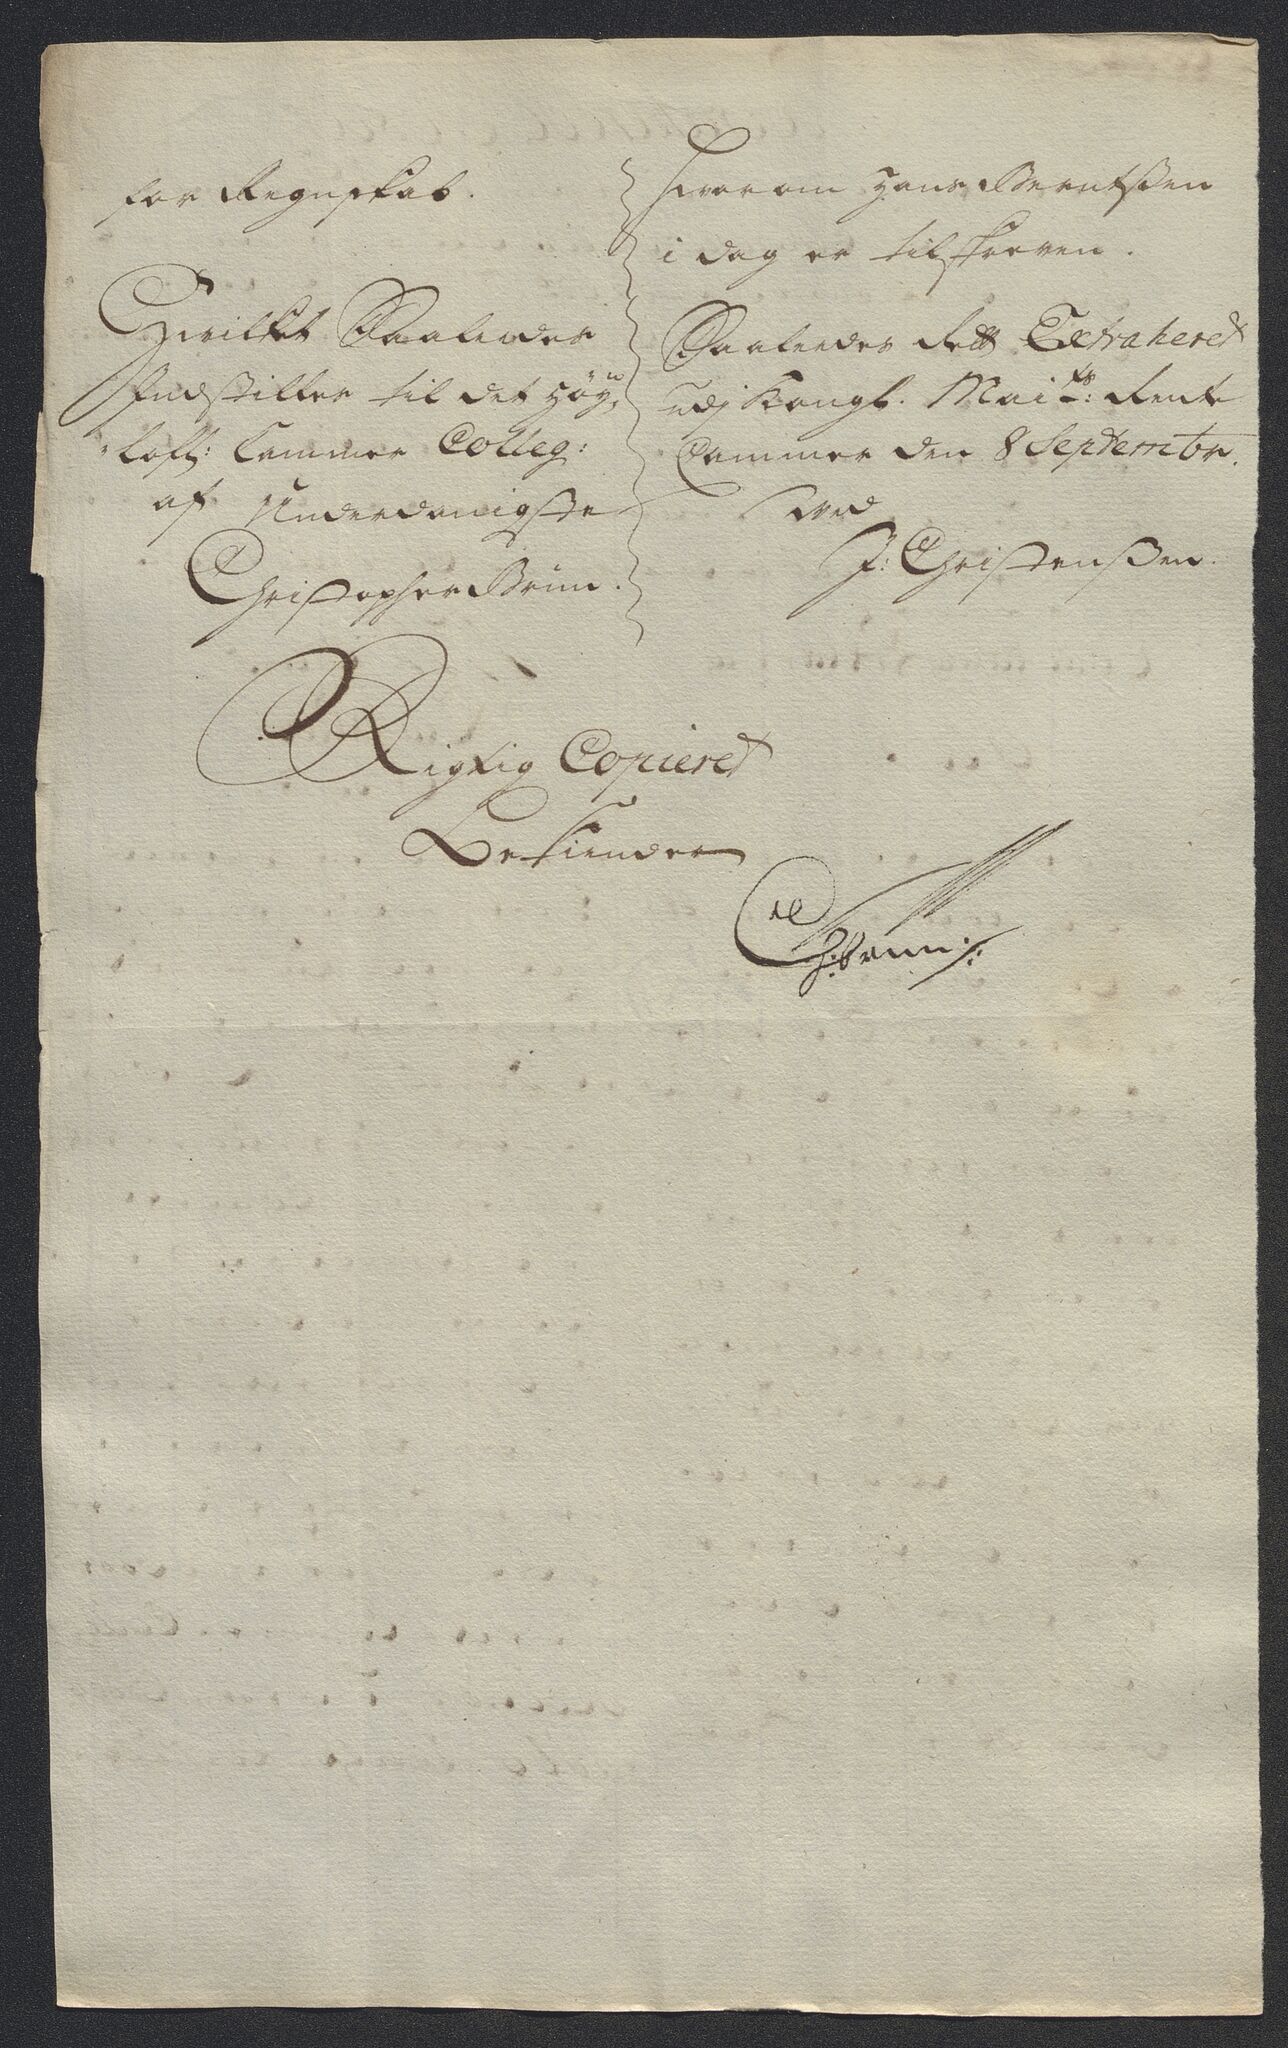 for Regnskab.
Hvilket Saaledes
Indstilles til det Höy
lofl: Cammer Colleg:
af Underdanigste
Christopher Brun.
Hvorom Hans Berntßen
i dag er tilskreven.
Saaledes Rett Extraheret
udj Kongl. Maits: Rente
Cammer den 8 Septembr.
ved
J: Christenßen.
Rigtig Copieret
Bekiender
Ch: Brun